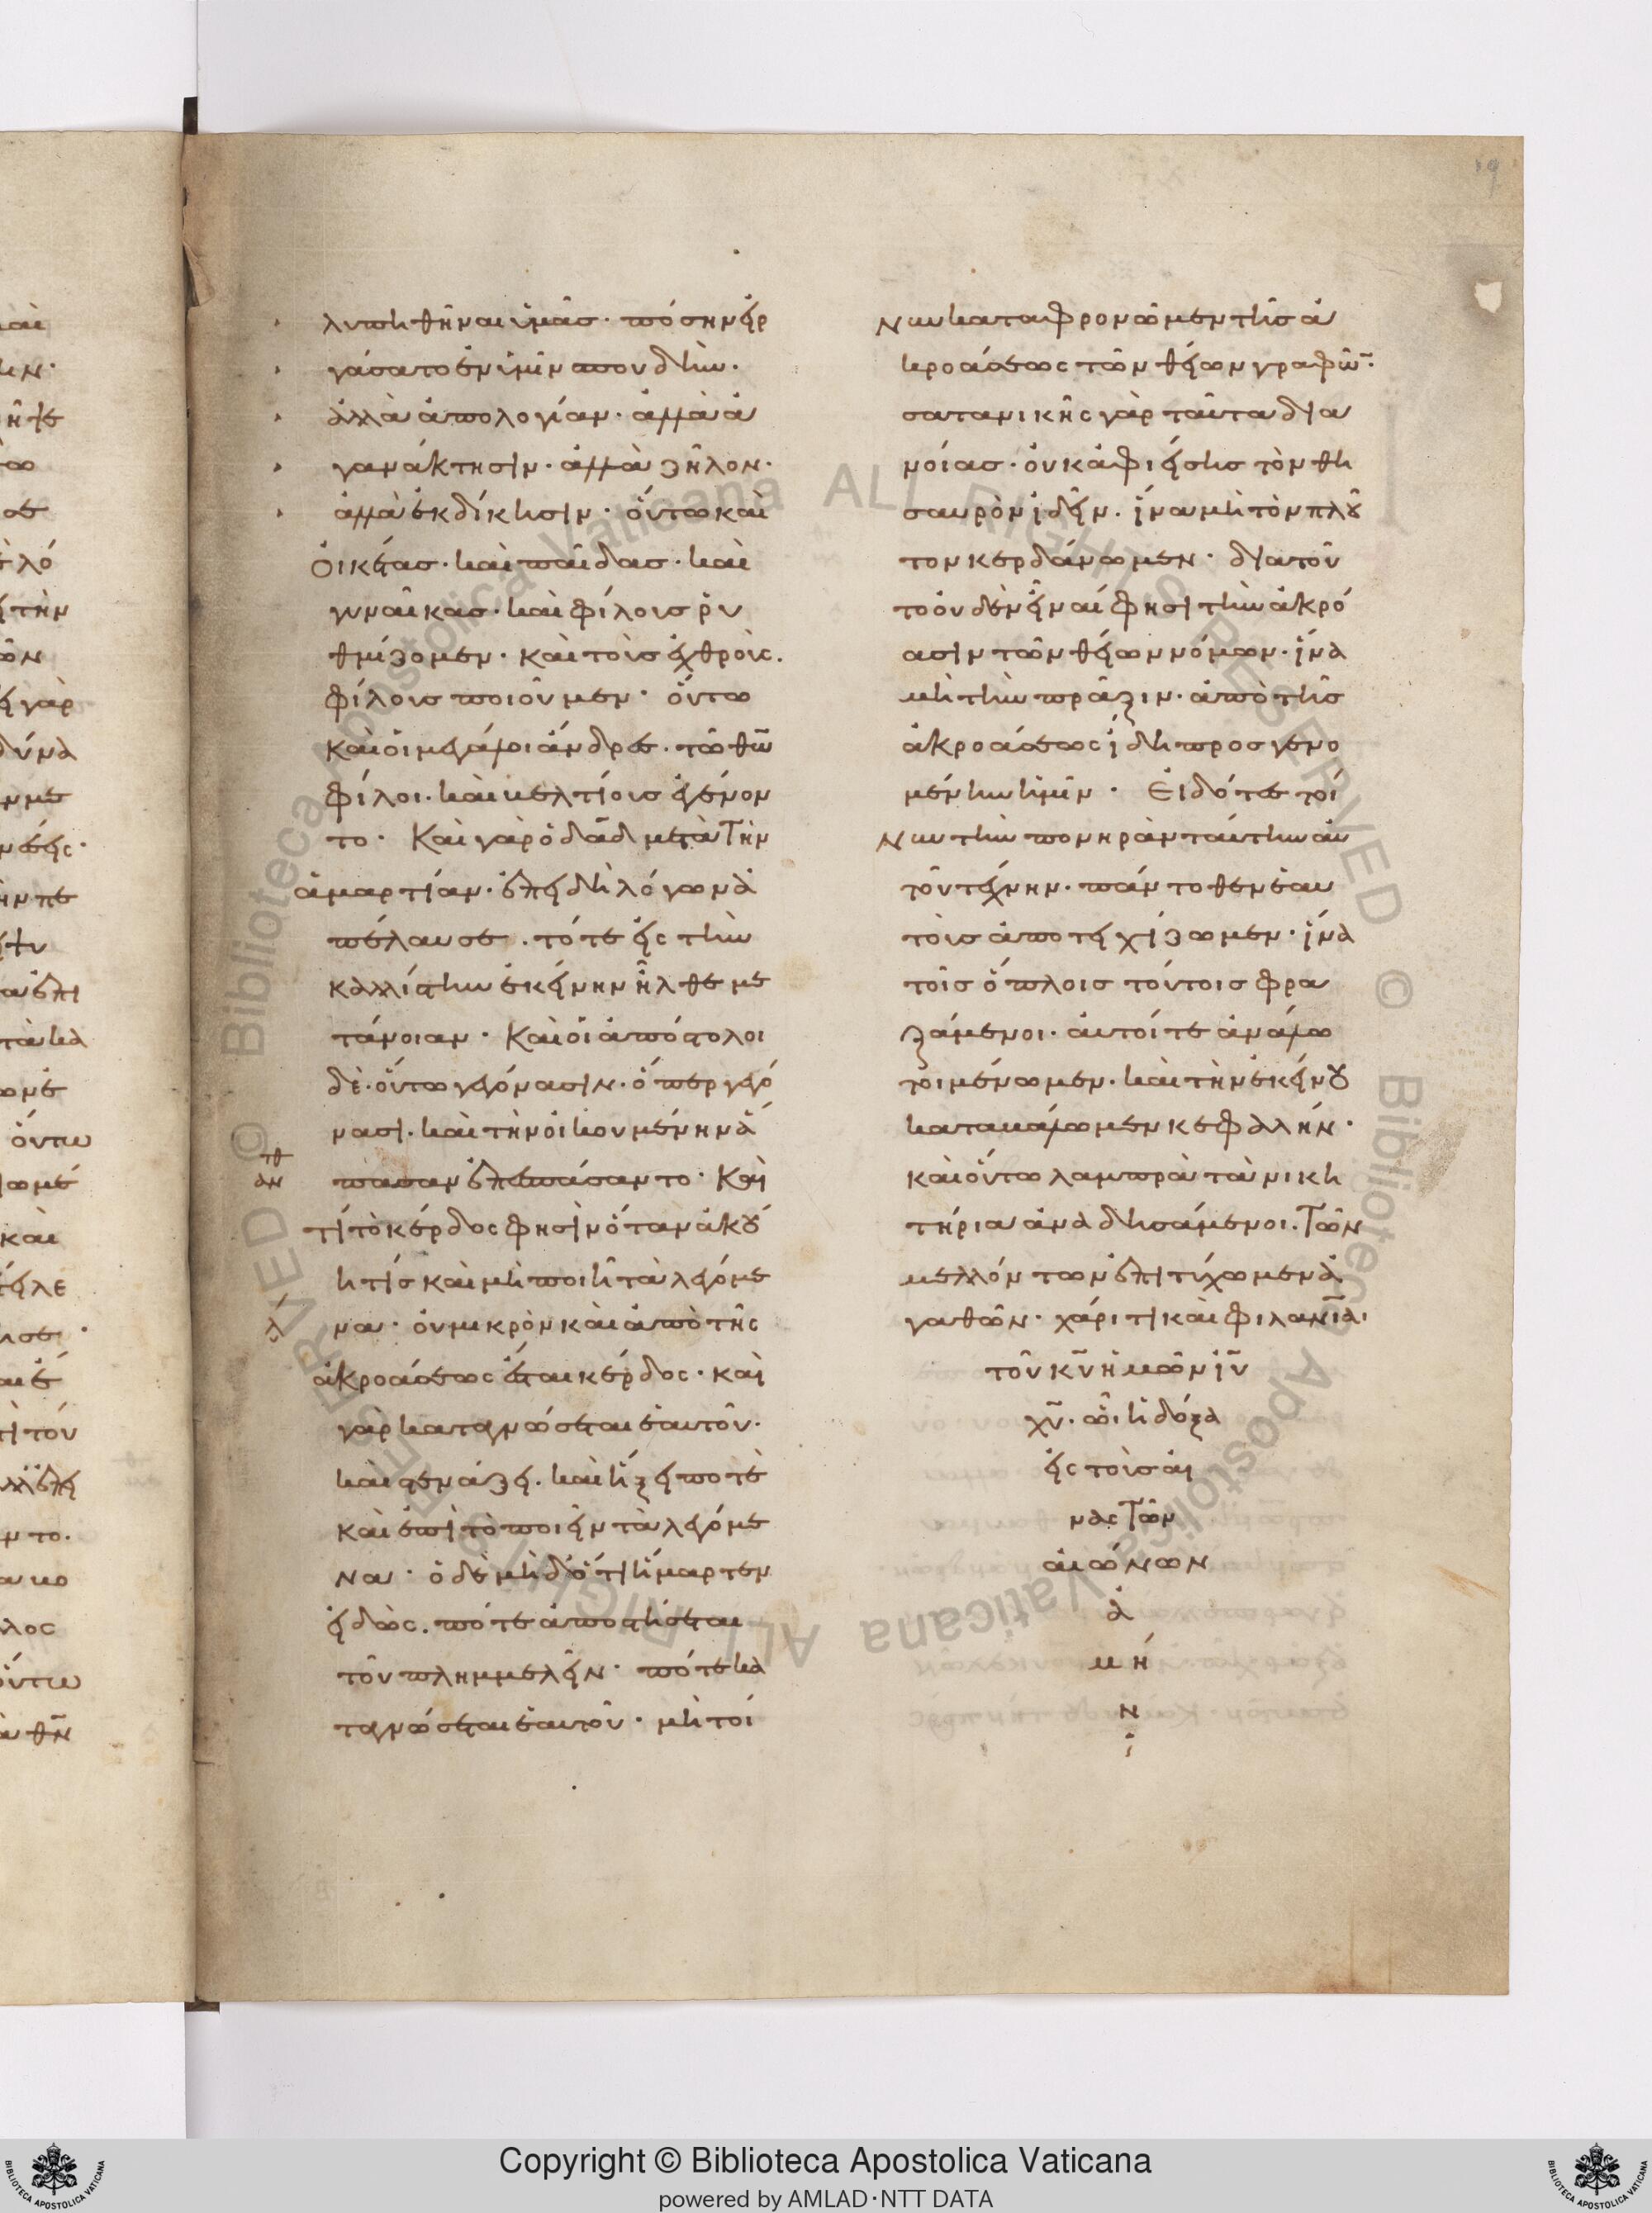 λυπηθῆναι ὑμᾶσ· πόσην ἐρ
γάσατο ἐν ὑμῖν σπουδήν·
ἀλλὰ ἀπολογίαν· ἀλλὰ ἀ
γανάκτησιν· ἀλλὰ ζῆλον·
ἀλλὰ ἐκδίκησιν· ὅυτω καὶ
ὀικέτασ· καὶ παῖδασ· καὶ
γυναῖκασ· καὶ φίλουσ ῥυ
θμίζομεν· καὶ τοὺσ ἐχθρούς.
φίλουσ ποιοῦμεν· ὅυτω
καὶ ὁι μεγάλοι ἄνδρεσ· τῶ θω̄
φίλοι· καὶ βελτίουσ ἐγένον
το· Καὶ γὰρ ὁ δᾱδ μετὰ Τὴν
ἁμαρτίαν· ἐπειδὴ λόγων ἀ
πέλαυσε. τότε εἰς τὴν
καλλίστην ἐκείνην ἦλθε με
τάνοιαν· Καὶ ὁι ἀπόστολοι
δὲ· ὅυτω γεγόνασιν· ὅπερ γεγό
νασι· καὶ τὴν ὀικουμένην ἅ
πασαν ἐπεσπάσαντο· Καὶ
τί τὸ κέρδος φησὶν ὅταν ἀκού
η τίσ καὶ μὴ ποιῆ τὰ λεγόμε
να· ὀυ μικρὸν καὶ ἀπὸ τῆς
ἀκροάσεως ἔσται κέρδος· καὶ
γὰρ καταγνώσεται ἑαυτοῦ·
καὶ στενάξει· καὶ ἥξει ποτὲ
καὶ ἐπὶ τὸ ποιεῖν τὰ λεγόμε
να· ὁ δὲ μὴ δ' ὅτι ἥμαρτεν
εἰδὼς. πότε ἀποστήσεται
τοῦ πλημμελεῖν· πότε κα
ταγνώσεται ἑαυτοῦ· μὴ τοί
νυν καταφρονῶμεν τῆσ ἀ
κροάσεως τῶν θείων γραφῶ̄·
σατανικῆς γὰρ ταῦτα δια
νοίασ· ὀυκ ἀφιείσησ τὸν θη
σαυρὸν ἰδεῖν. ἵνα μὴ τὸν πλοῦ
τον κερδάνωμεν· διατοῦ
το ὀυδὲν εἶναί φησι τὴν ἀκρό
ασιν τῶν θείων νόμων· ἵνα
μὴ τὴν πρᾶξιν· ἀπὸ τῆσ
ἀκροάσεως ἴδη προσγενο
μένην ἡμῖν· Ἐιδότεσ τοί
νυν τὴν πονηρὰν ταύτην ἀυ
τοῦ τέχνην· πάντοθεν ἑαυ
τοὺσ ἀποτειχίζωμεν· ἵνα
τοῖσ ὅπλοισ τούτοισ φρα
ξάμενοι· ἀυτοί τε ἀνάλω
τοι μένωμεν· καὶ τὴν ἐκείνου
καταβάλωμεν κεφαλήν·
καὶ ὅυτω λαμπρὰ τὰ νικη
τήρια ἀναδησάμενοι. Τῶν
μελλόντων ἐπιτύχωμεν ἀ
γαθῶν· χάριτι καὶ φιλαν̄ία·
τοῦ κ̄υ ἡμῶν ἰ̄υ
χ̄υ· ὧι ἡ δόξα
εἰς τοὺσ ἀι
νας Τῶν
ἀιώνων
ἀ
μή
ν